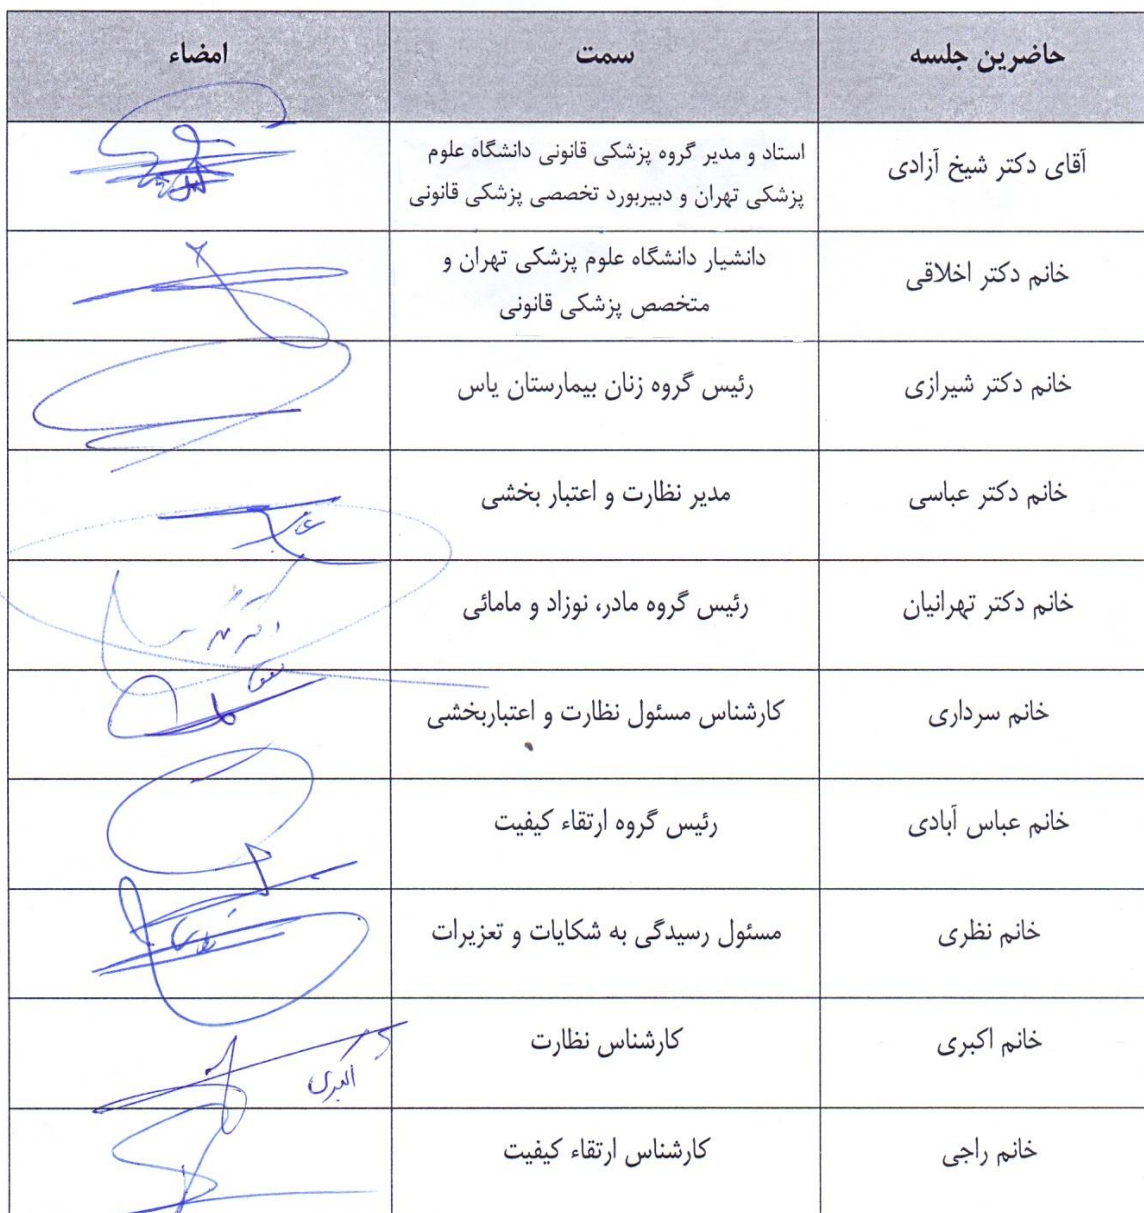 حاضرین جلسه
سمت
امضاء
آقای دکتر شیخ آزادی
استاد و مدیر گروه پزشکی قانونی دانشگاه علوم
پزشکی تهران و دبیربورد تخصصی پزشکی قانونی
خانم دکتر اخلاقی
دانشیار دانشگاه علوم پزشکی تهران و
متخصص پزشکی قانونی
خانم دکتر شیرازی
رئیس گروه زنان بیمارستان یاس
خانم دکتر عباسی
مدیر نظارت و اعتبار بخشی
خانم دکتر تهرانیان
رئیس گروه مادر، نوزاد و مامائی
خانم سرداری
کارشناس مسئول نظارت و اعتباربخشی
خانم عباس آبادی
رئیس گروه ارتقاء کیفیت
خانم نظری
مسئول رسیدگی به شکایات و تعزیرات
خانم اکبری
کارشناس نظارت
اکبری
خانم راجی
کارشناس ارتقاء کیفیت